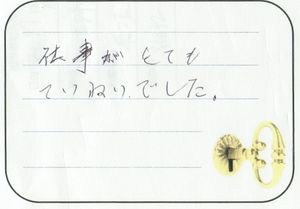 仕事がとても
ていねいでした。